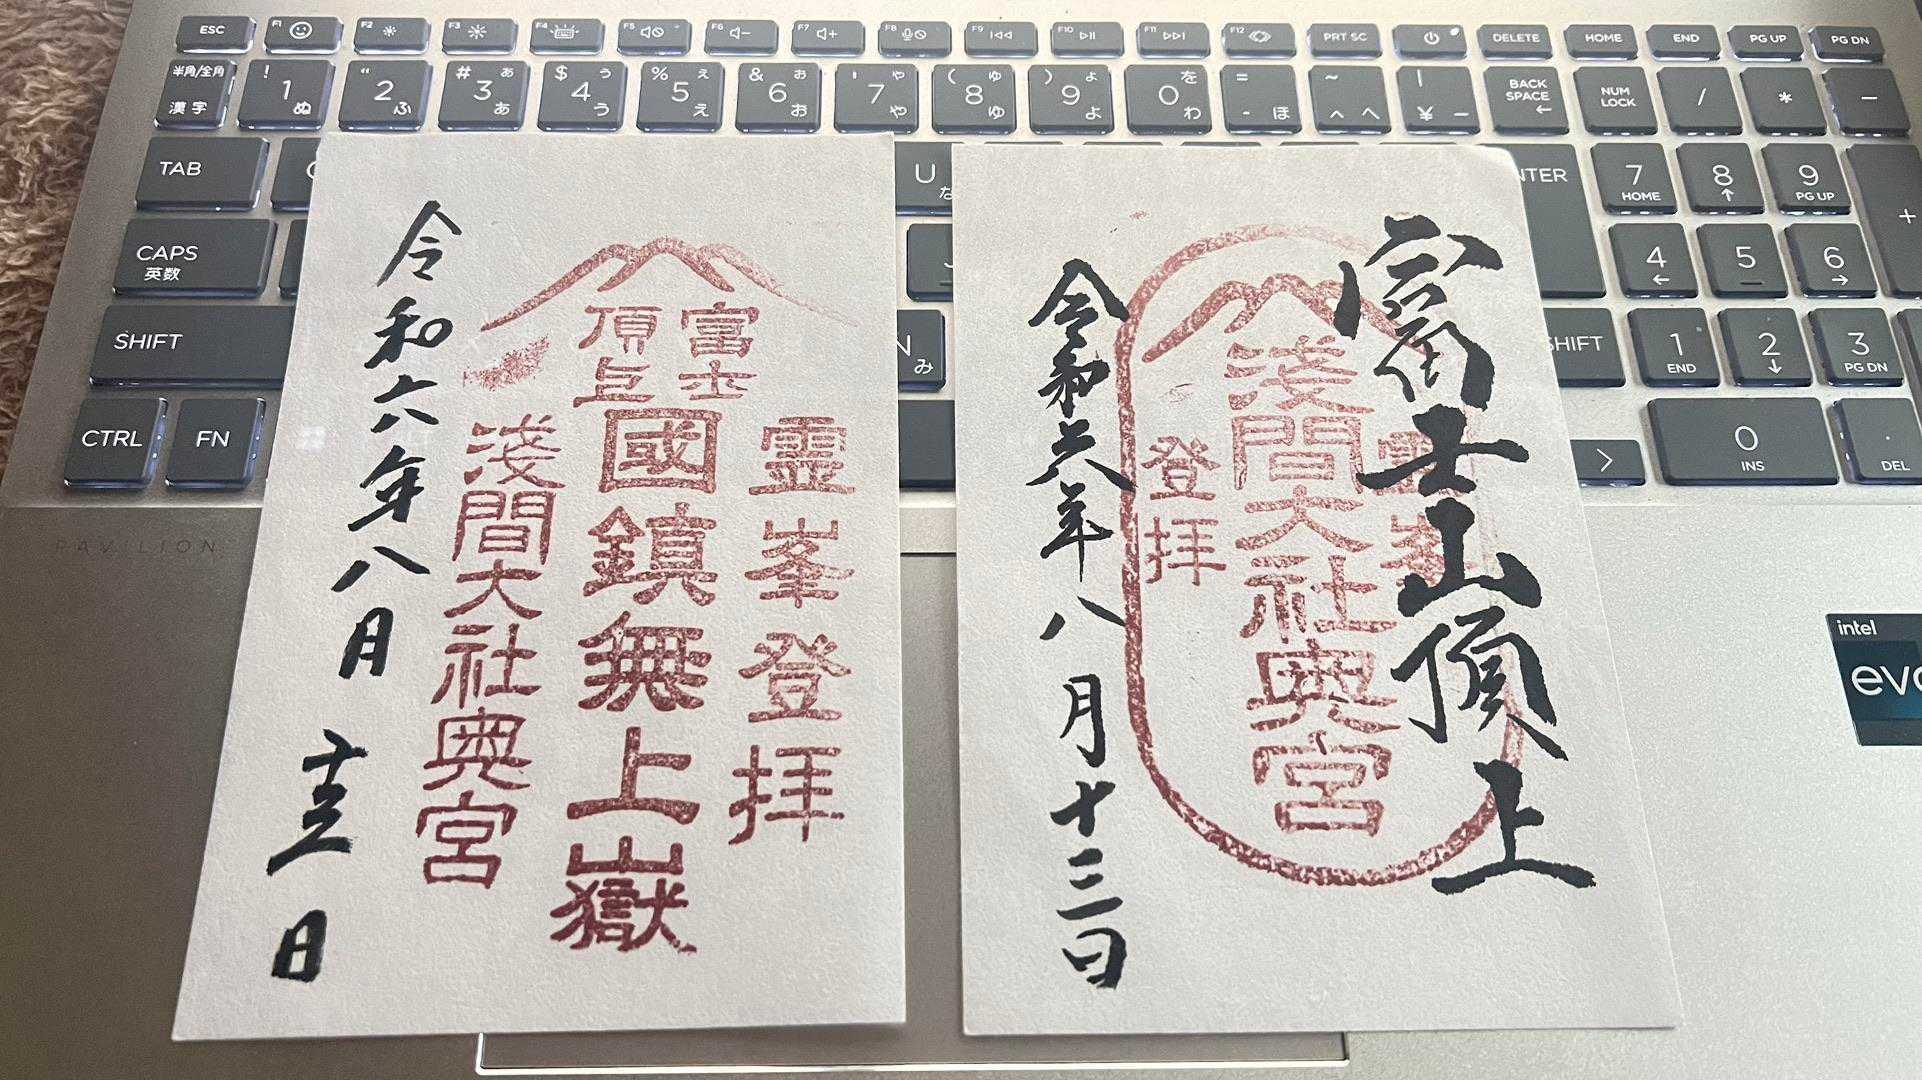 ESC F1 F2 F3 F4 F5 F6 F7 F8 F9 F10 F11 F12 PRT SC DELETE HOME END PG UP PG DN
半角/全角 漢字 ! 1 ぬ " 2 ふ # 3 ぁ あ $ 4 ぅ う % 5 ぇ え & 6 ぉ お ' 7 ゃ や ( 8 ゅ ゆ ) 9 ょ よ 0 を わ = - ほ ~ ^ へ | ¥ ー BACK SPACE ← NUM LOCK / * -
TAB U な ENTER 7 HOME 8 ↑ 9 PG UP +
CAPS 英数 4 ← 5 6 →
SHIFT N み SHIFT 1 END 2 ↓ 3 PG DN
CTRL FN 0 INS . DEL
PAVILION
intel
evo
霊峯登拝
富士
頂上
國鎮無上嶽
淺間大社奥宮
令和六年八月十三日
富士山頂上
霊峯
淺間大社奥宮
登拝
令和六年八月十三日